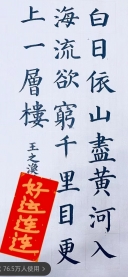 白日依山盡黄河入
海流欲窮千里目更
上一層樓
王之渙
好运连连
76.5万人使用 >